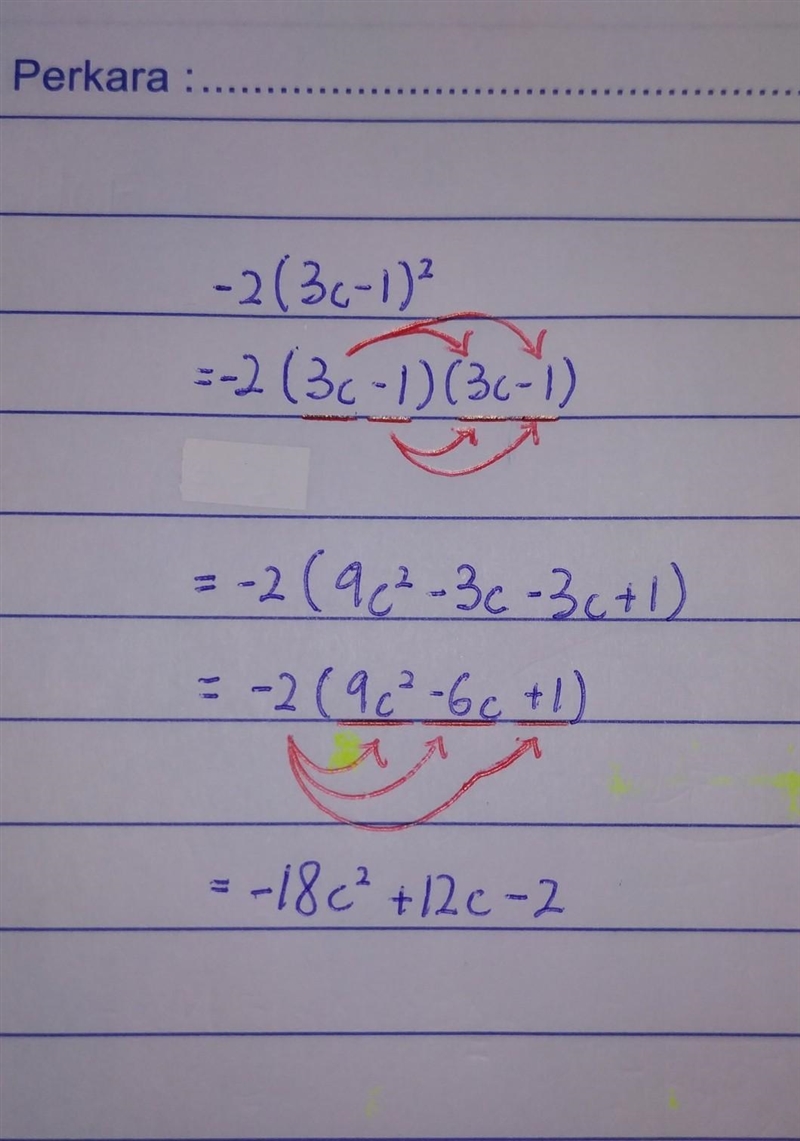 Perkara :........................................................
-2(3c-1)²
=-2(3c-1)(3c-1)
= -2(9c²-3c-3c+1)
= -2(9c²-6c+1)
= -18c²+12c-2